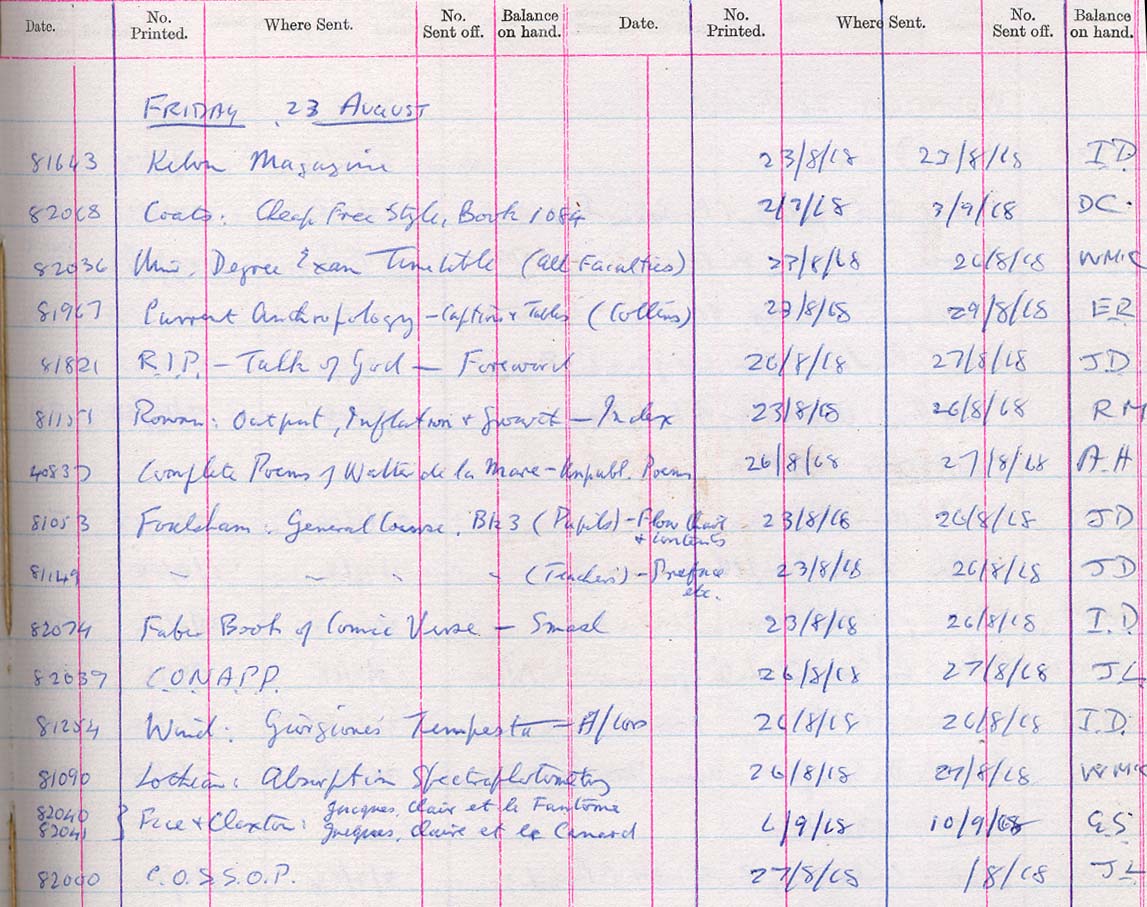 Date. No. Printed. Where Sent. No. Sent off. Balance on hand. Date. No. Printed. Where Sent. No. Sent off. Balance on hand.
FRIDAY 23 AUGUST
81643 Kelvin Magazine 23/8/68 27/8/68 I.D
82068 Coats: Cheap Free Style, Book 1084 2/9/68 3/9/68 DC.
82036 Univ. Degree Exam Timetable (all Faculties) 23/8/68 26/8/68 WMK
81967 Current Anthropology - Captions & Tables (Collins) 29/8/68 ER
81821 R.I.P. - Talk of God - Foreword 26/8/68 27/8/68 J.D
Rowan: Output, Inflation & Growth - Index 23/8/68 26/8/68 RM
Complete Poems of Walter de la Mare - Unpubl. Poems 26/8/68 27/8/68 A.H
81053 Foulsham: General Course. Bk 3 (Pupils) - Flow Chart 23/8/68 26/8/68 JD
& Contents
81149 " " " " (Teachers) - Preface 23/8/68 26/8/68 JD
etc.
82074 Faber Book of Comic Verse - Small 23/8/68 26/8/68 I.D.
82039 C.O.N.A.P.P. 26/8/68 27/8/68 JL
81254 Wind: Giorgione's Tempesta - A/cors 26/8/68 26/8/68 I.D.
81090 Lothian: Absorption Spectrophotometry 26/8/68 27/8/68 WMK
82040 Jacques, Claire et le Fantôme
82041 Pace & Claxton: Jacques, Claire et le Canard 6/9/68 10/9/68 G.S
82000 C.O.S.S.O.P. 27/8/68 /8/68 JL